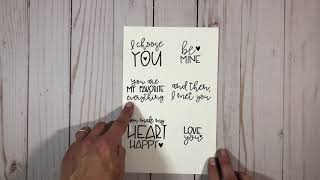 I choose
YOU
be
MINE
you are
MY FAVORITE
everything
and then,
I met you
you make my
HEART
HAPPY
LOVE
you